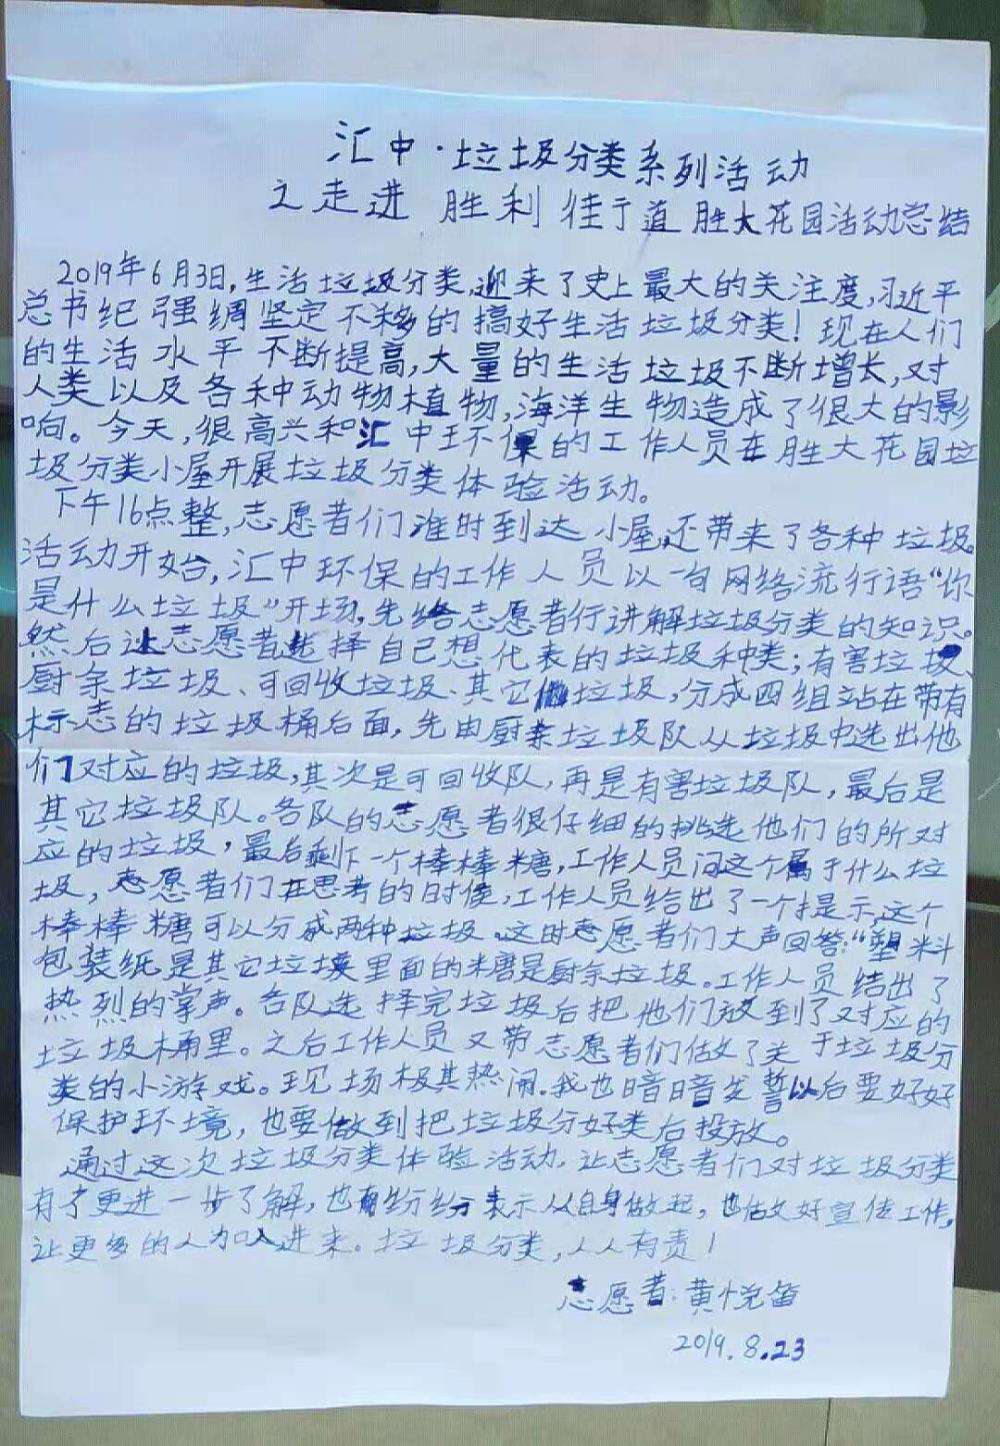 汇中·垃圾分类系列活动
之走进 胜利街道胜大花园活动总结
2019年6月3日,生活垃圾分类,迎来了史上最大的关注度,习近平
总书纪强绸坚定不移的搞好生活垃圾分类!现在人们
的生活水平不断提高,大量的生活垃圾不断增长,对
人类以及各种动物植物,海洋生物造成了很大的影
响。今天,很高兴和汇中环保的工作人员在胜大花园垃
圾分类小屋开展垃圾分类体验活动。
下午16点整,志愿者们准时到达小屋,还带来了各种垃圾。
活动开始,汇中环保的工作人员以一句网络流行语“你
是什么垃圾”开场,先给志愿者行讲解垃圾分类的知识。
然后让志愿者选择自己想代表的垃圾种类;有害垃圾、
厨余垃圾、可回收垃圾、其它垃圾,分成四组站在带有
标志的垃圾桶后面,先由厨余垃圾队从垃圾中选出他
们对应的垃圾,其次是可回收队,再是有害垃圾队,最后是
其它垃圾队。各队的志愿者很仔细的挑选他们的所对
应的垃圾,最后剩下一个棒棒糖,工作人员问这个属于什么垃
圾,志愿者们在思考的时候,工作人员给出了一个提示,这个
棒棒糖可以分成两种垃圾。这时志愿者们大声回答:“塑料
包装纸是其它垃圾里面的糖是厨余垃圾。工作人员结出了
热烈的掌声。各队选择完垃圾后把他们放到了对应的
垃圾桶里。之后工作人员又带志愿者们做了关于垃圾分
类的小游戏。现场极其热闹.我也暗暗发誓以后要好好
保护环境,也要做到把垃圾分好类后投放。
通过这次垃圾分类体验活动,让志愿者们对垃圾分类
有了更进一步了解,也有纷纷表示从自身做起,也做好宣传工作,
让更多的人加入进来。垃圾分类,人人有责!
志愿者:黄悦笛
2019.8.23